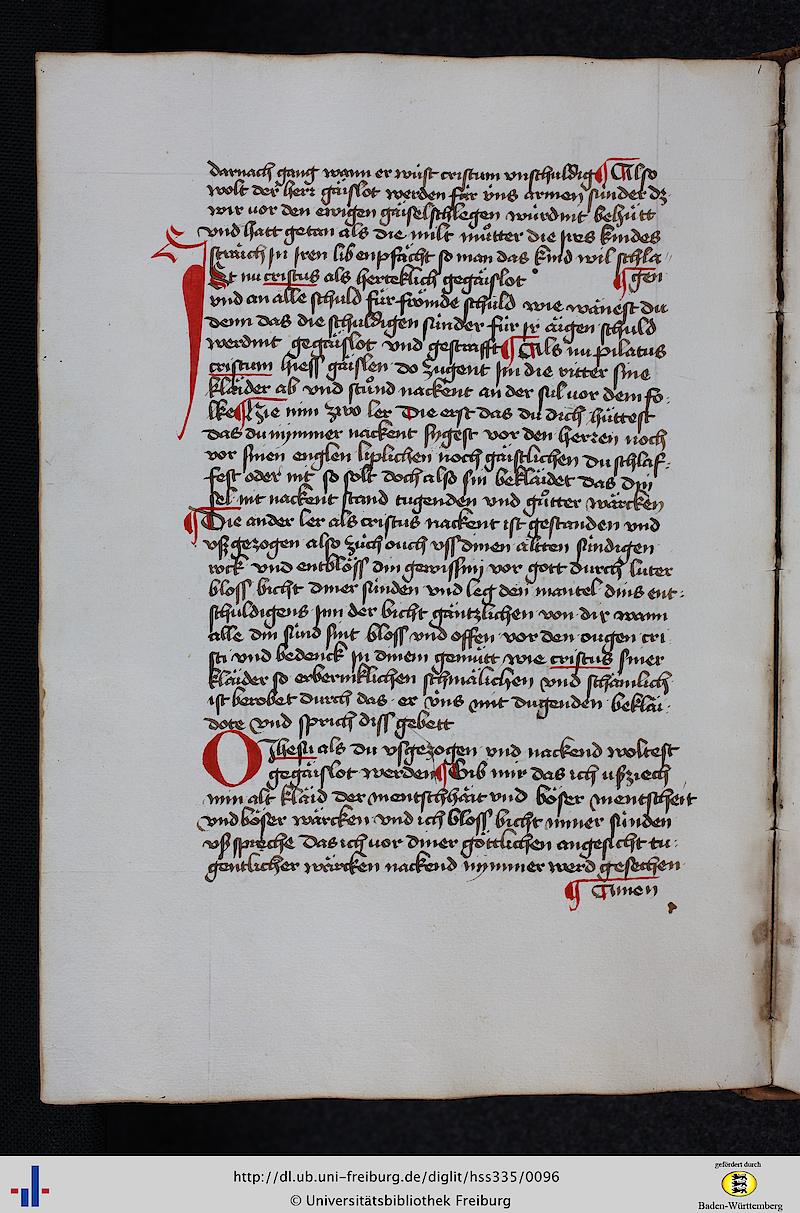 darnach gang wann er wüst cristum vnschuldig ¶ Also
wolt der herr gäislot werden für vns armen sünder dz
wir vor den ewigen gäiselschlegen würdint behütt
vnd hatt getan als die milt muͦtter die jres kindes
sträich jn jren lib enpfächt so man das kind wil schla-
Ist nu cristus als herteklich gegäislot ¶ gen
vnd an alle schuld für frömde schuld wie wänest du
denn das die schuldigen sünder für jr äigen schuld
werdint gegäislot vnd gestrafft ¶ Als nu pilatus
cristum hiess gäislen do zugent jm die ritter sine
kläider ab vnd stuͦnd nackent an der sul vor dem fo-
lke ¶ Hie nim zwo ler Die erst das du dich hüttest
das du nymmer nackent sygest vor den herren noch
vor sinen englen liplichen noch gäistlichen du schlaf-
fest oder nit so solt doch also sin bekläidet das din
sel nit nackent stand tugenden vnd guͦtter wärcken
¶ Die ander ler als cristus nackent ist gestanden vnd
vsz gezogen also züch ouch vss dinen altten sündigen
rock vnd entblöss din gewissni vor gott durch luter
bloss bicht diner sünden vnd leg den mantel dins ent-
schuldigens jnn der bicht gäntzlichen von dir wann
alle din sünd sint bloss vnd offen vor den ougen cri
sti vnd bedenck jn dinem gemütt wie cristus siner
kläider so erbermklichen schmälichen vnd schamlich
ist berobet durch das er vns mit dugenden beklai-
dote vnd sprich diss gebett
O Jhesu als du vsgezogen vnd nackend woltest
gegäislot werden ¶ Gib mir das ich uszziech
min alt kläid der mentschhäit vnd böser mentscheit
vnd böser wärcken vnd ich bloss bicht miner sünden
vsz spreche das ich vor diner göttlichen angesicht tu-
gentlicher wärcken nackend nymmer werd gesechen
¶ Amen
http://dl.ub.uni-freiburg.de/diglit/hss335/0096
© Universitätsbibliothek Freiburg
gefördert durch
Baden-Württemberg